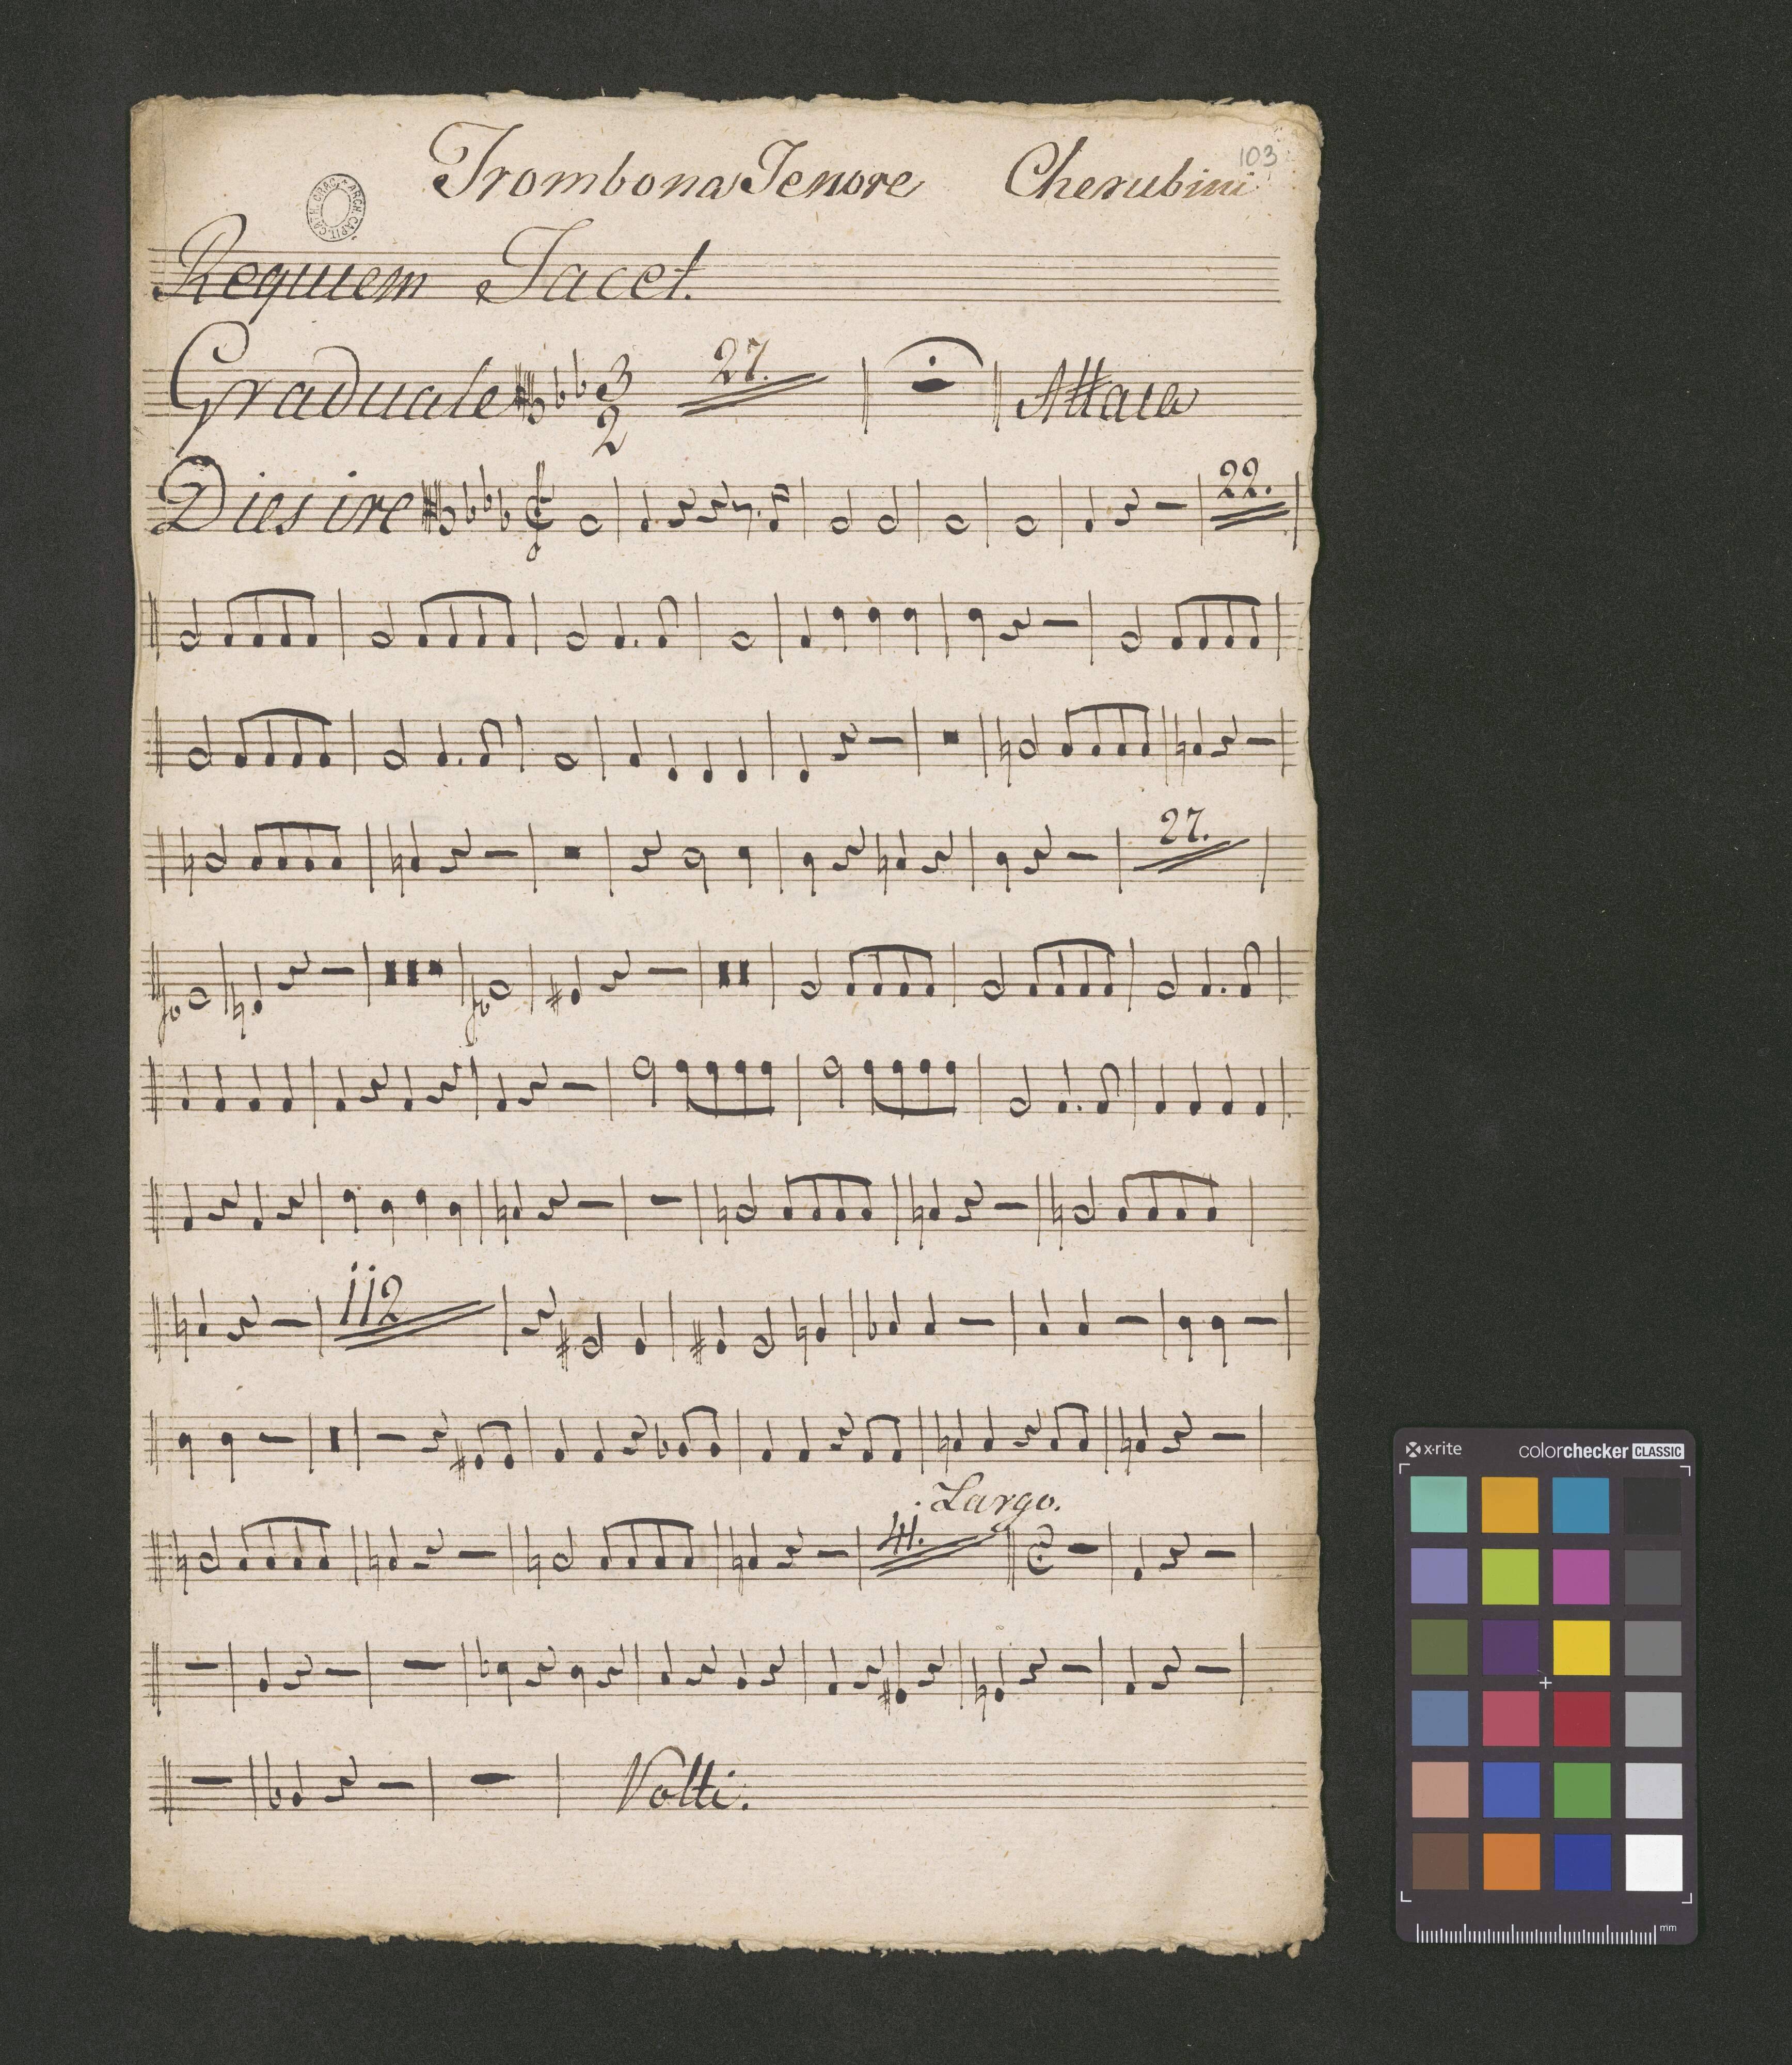 103
Trombona Tenore Cherubini
ARCH. CAPIT. CATH. CRAC.
Requiem Tacet.
Graduale 3 2 27. Attaca
Dies ire 22.
27.
112
41. Largo.
Volti.
x-rite colorchecker CLASSIC
mm